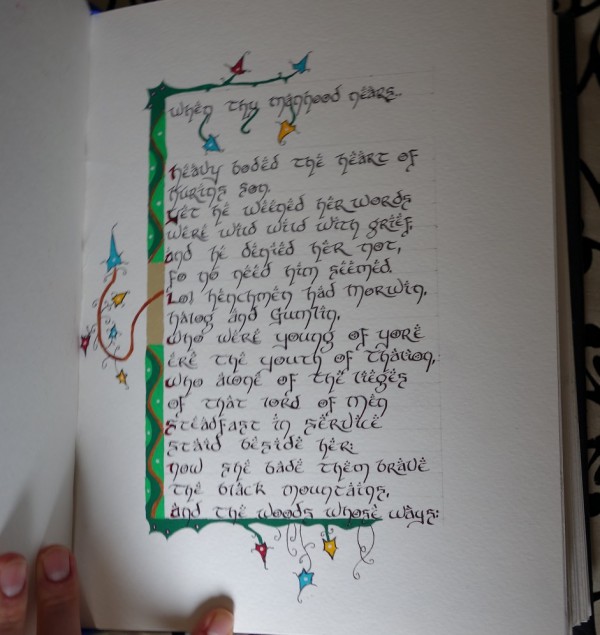 when thy manhood nears.
heavy boded the heart of
Hurins son.
yet he weened her words
were wild wild with grief;
and he denied her not,
fo no need him seemed.
Lo! henchmen had Morwin,
halog and Gumlin,
who were young of yore
ere the youth of Thalion,
who alone of the lieges
of that lord of Men
steadfast in service
staid beside her:
now she bade them brave
the black mountains,
and the woods whose ways: